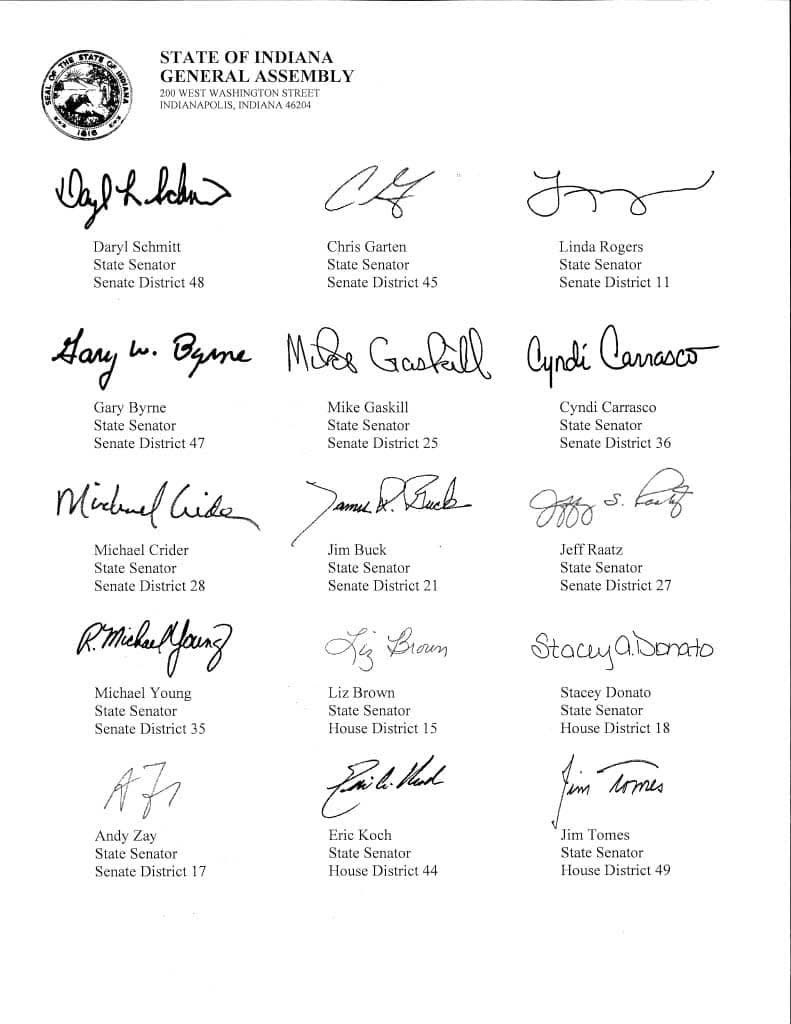 SEAL OF THE STATE OF INDIANA
1816
STATE OF INDIANA
GENERAL ASSEMBLY
200 WEST WASHINGTON STREET
INDIANAPOLIS, INDIANA 46204
Daryl Schmitt
State Senator
Senate District 48
Chris Garten
State Senator
Senate District 45
Linda Rogers
State Senator
Senate District 11
Gary W. Byrne
Gary Byrne
State Senator
Senate District 47
Mike Gaskill
Mike Gaskill
State Senator
Senate District 25
Cyndi Carrasco
Cyndi Carrasco
State Senator
Senate District 36
Michael Crider
Michael Crider
State Senator
Senate District 28
James R. Buck
Jim Buck
State Senator
Senate District 21
Jeff Raatz
State Senator
Senate District 27
R. Michael Young
Michael Young
State Senator
Senate District 35
Liz Brown
Liz Brown
State Senator
House District 15
Stacey A. Donato
Stacey Donato
State Senator
House District 18
Andy Zay
State Senator
Senate District 17
Eric Koch
State Senator
House District 44
Jim Tomes
Jim Tomes
State Senator
House District 49